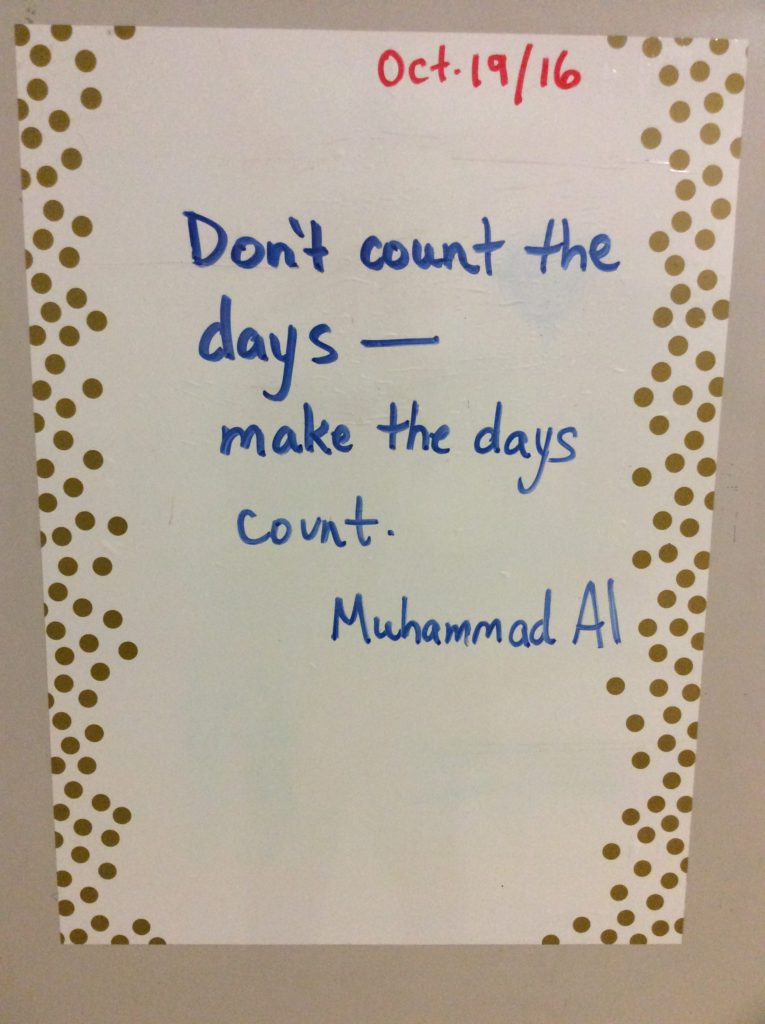 Oct. 19/16
Don't count the
days —
make the days
count.
Muhammad Al